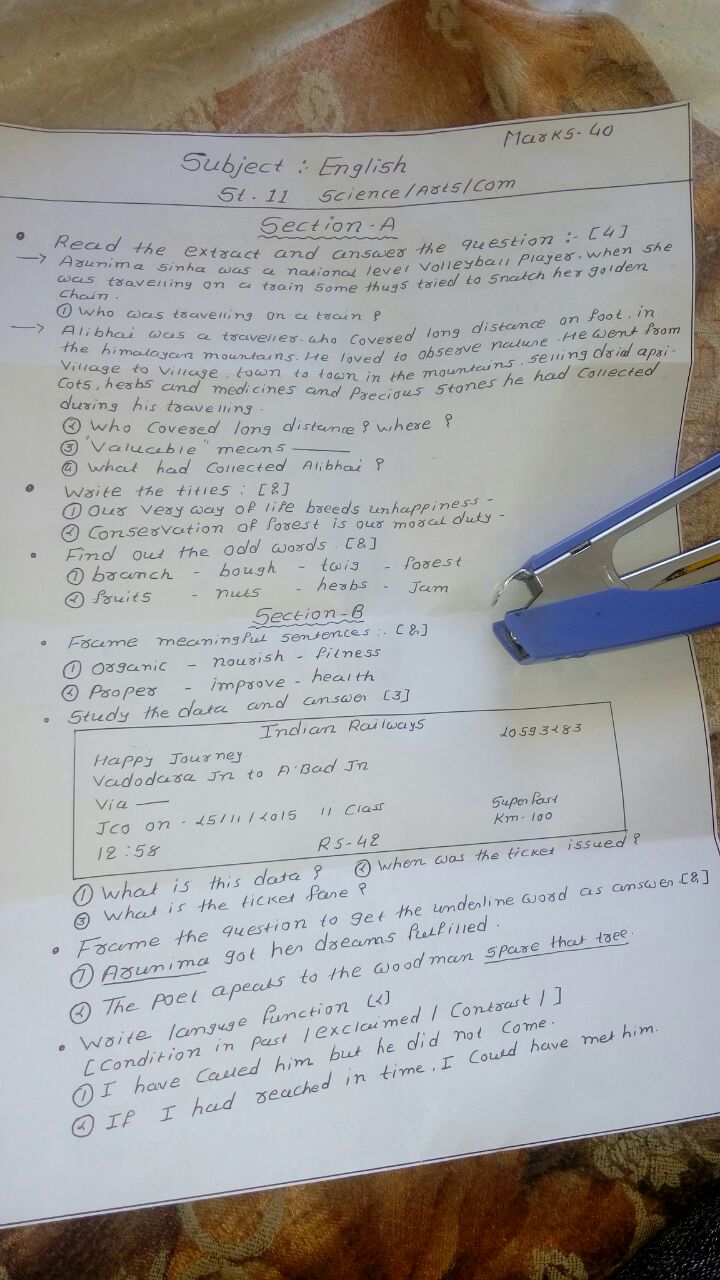 Marks-40
Subject : English
St. 11 Science/Arts/Com
Section-A
• Read the extract and answer the question :- [4]
→ Arunima Sinha was a national level Volleyball Player. when she
was travelling on a train some thugs tried to snatch her golden
chain.
① Who was travelling on a train ?
→ Alibhai was a traveller. who covered long distance on foot. in
the himalayan mountains. He loved to observe nature. He went from
Village to Village, town to town in the mountains. selling drid apri-
cots, herbs and medicines and Precious stones he had collected
during his travelling.
② Who covered long distance ? where ?
③ "Valuable" means ———
④ What had collected Alibhai ?
• Write the titles : [2]
① Our very way of life breeds unhappiness -
② Conservation of forest is our moral duty -
• Find out the odd words. [2]
① branch - bough - twig - forest
② fruits - nuts - herbs - Jam
Section-B
• Frame meaningful sentences :- [2]
① Organic - nourish - fitness
② Proper - improve - health
• Study the data and answer [3]
Indian Railways 20593283
Happy Journey
Vadodara Jn to A'Bad Jn
Via ——
Jco on - 25/11/2015 11 Class Superfast
Km-100
12:58 RS-42
① What is this data ? ② When was the ticket issued ?
③ What is the ticket fare ?
• Frame the question to get the underline word as answer. [2]
① Arunima got her dreams fulfilled.
② The Poet apeals to the woodman spare that tree.
• Write languge function [2]
[Condition in Past / exclaimed / Contrast / ]
① I have called him but he did not come.
② If I had reached in time, I could have met him.